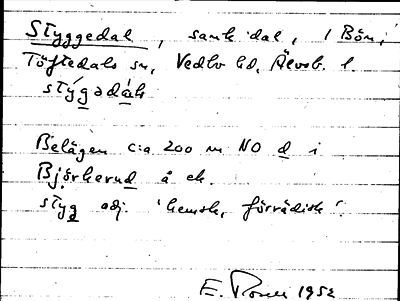 Styggedal, sank dal, i Bön,
Töftedals sn, Vedbo hd, Älvsb. l.
stýgədàls
Belägen c:a 200 m NO d i
Björkerud å ek.
styg adj. 'hemsk, förrädisk'.
E. 1952